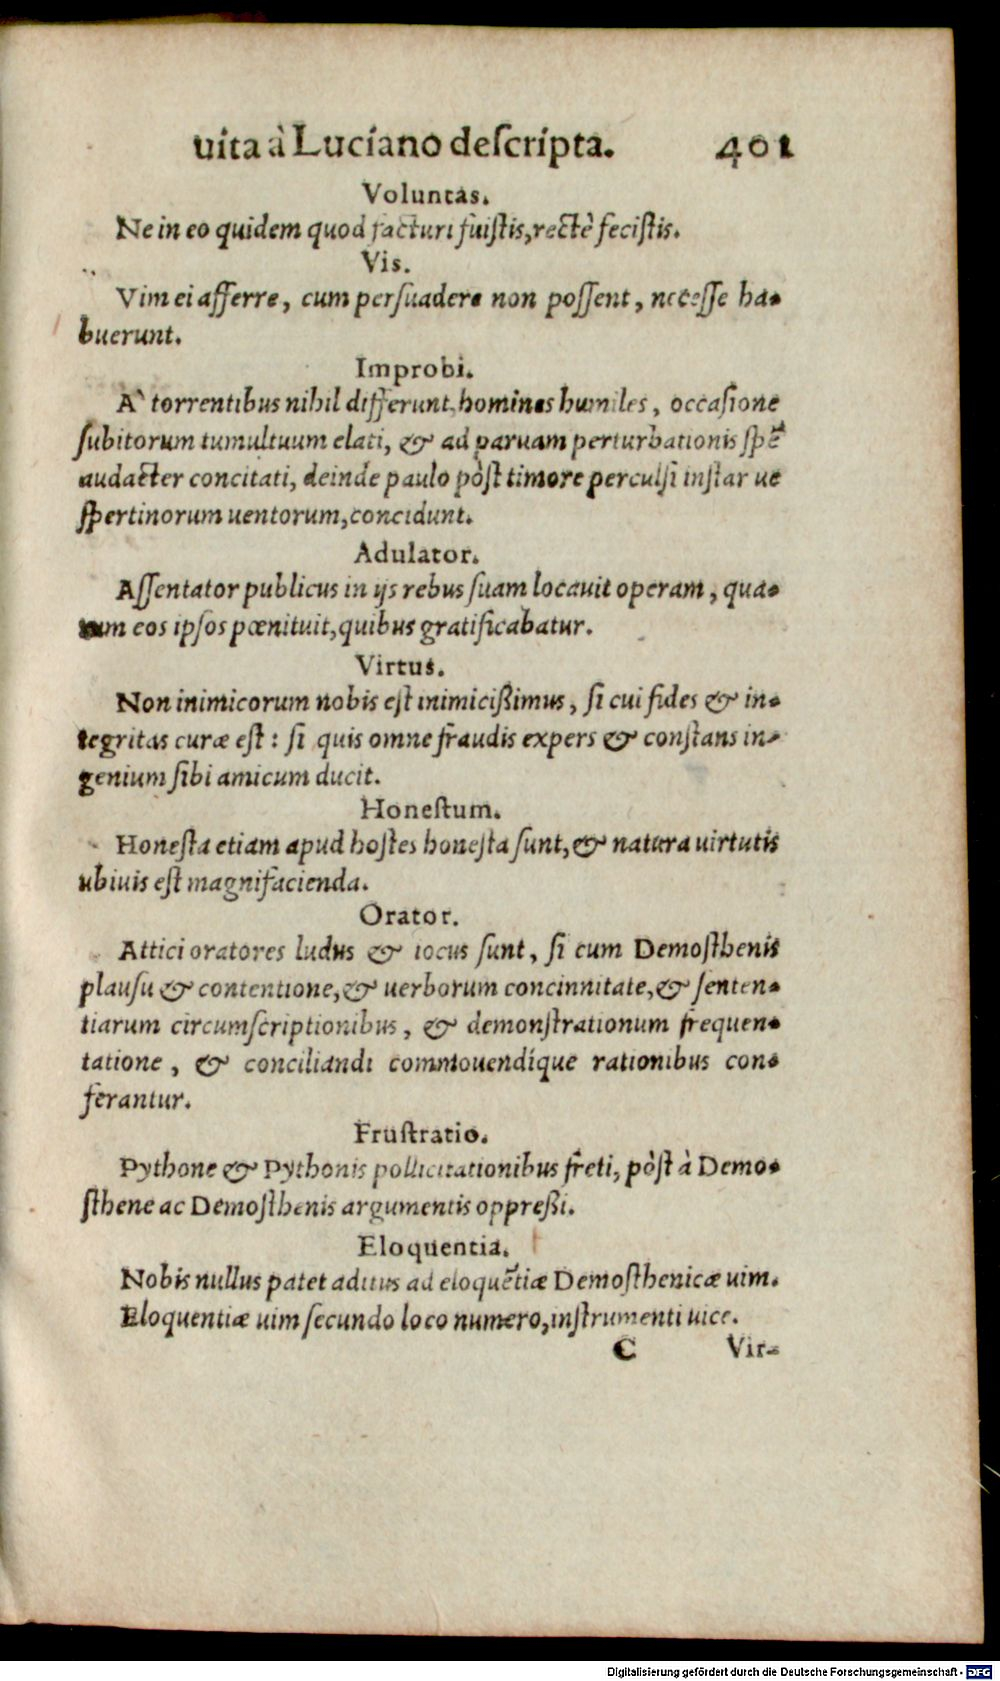 uita à Luciano deſcripta. 401
Voluntas.
Ne in eo quidem quod facturi fuiſtis, rectè feciſtis.
Vis.
Vim ei afferre, cum perſuadere non poſſent, neceſſe ha-
buerunt.
Improbi.
A` torrentibus nihil differunt homines humiles, occaſione
ſubitorum tumultuum elati, & ad paruam perturbationis ſpẽ
audacter concitati, deinde paulo pòſt timore perculſi inſtar ue
ſpertinorum uentorum, concidunt.
Adulator.
Aſſentator publicus in ijs rebus ſuam locauit operam, qua-
rum eos ipſos pœnituit, quibus gratificabatur.
Virtus.
Non inimicorum nobis eſt inimicißimus, ſi cui fides & in-
tegritas curæ eſt: ſi quis omne fraudis expers & conſtans in-
genium ſibi amicum ducit.
Honeſtum.
Honeſta etiam apud hoſtes honeſta ſunt, & natura uirtutis
ubiuis eſt magnifacienda.
Orator.
Attici oratores ludus & iocus ſunt, ſi cum Demoſthenis
plauſu & contentione, & uerborum concinnitate, & ſenten-
tiarum circumſcriptionibus, & demonſtrationum frequen-
tatione, & conciliandi commouendíque rationibus con-
ferantur.
Fruſtratio.
Pythone & Pythonis pollicitationibus freti, pòſt à Demo-
ſthene ac Demoſthenis argumentis oppreßi.
Eloquentia.
Nobis nullus patet aditus ad eloquẽtiæ Demoſthenicæ uim.
Eloquentiæ uim ſecundo loco numero, inſtrumenti uice.
C Vir-
Digitalisierung gefördert durch die Deutsche Forschungsgemeinschaft - DFG